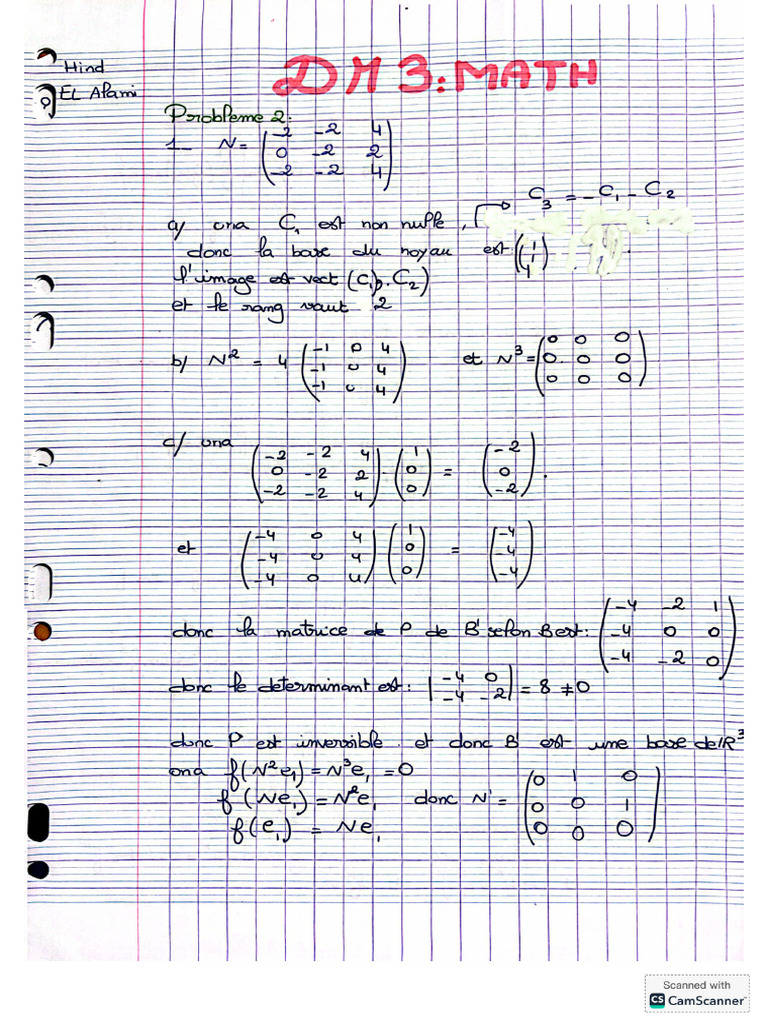 Hind
EL Alami
DM 3: MATH
Probleme 2:
1_ N= (-2 -2 4
0 -2 2
-2 -2 4)
C₃ = -C₁ - C₂
a/ ona C₁ est non nulle,
donc la base du noyau est: (1
1
1)
l'image est vect (C₁, C₂)
et le rang vaut 2
b/ N² = 4 (-1 0 4
-1 0 4
-1 0 4) et N³ = (0 0 0
0 0 0
0 0 0)
c/ ona (-2 -2 4
0 -2 2
-2 -2 4) . (1
0
0) = (-2
0
-2).
et (-4 0 4
-4 0 4
-4 0 4) . (1
0
0) = (-4
-4
-4)
donc la matrice de P de B' selon B est: (-4 -2 1
-4 0 0
-4 -2 0)
donc le determinant est: |-4 0
-4 -2| = 8 ≠ 0
donc P est inversible. et donc B' est une base de IR³
ona f(N²e₁) = N³e₁ = 0
f(Ne₁) = N²e₁ donc N' = (0 1 0
0 0 1
0 0 0)
f(e₁) = Ne₁
Scanned with
CS CamScanner